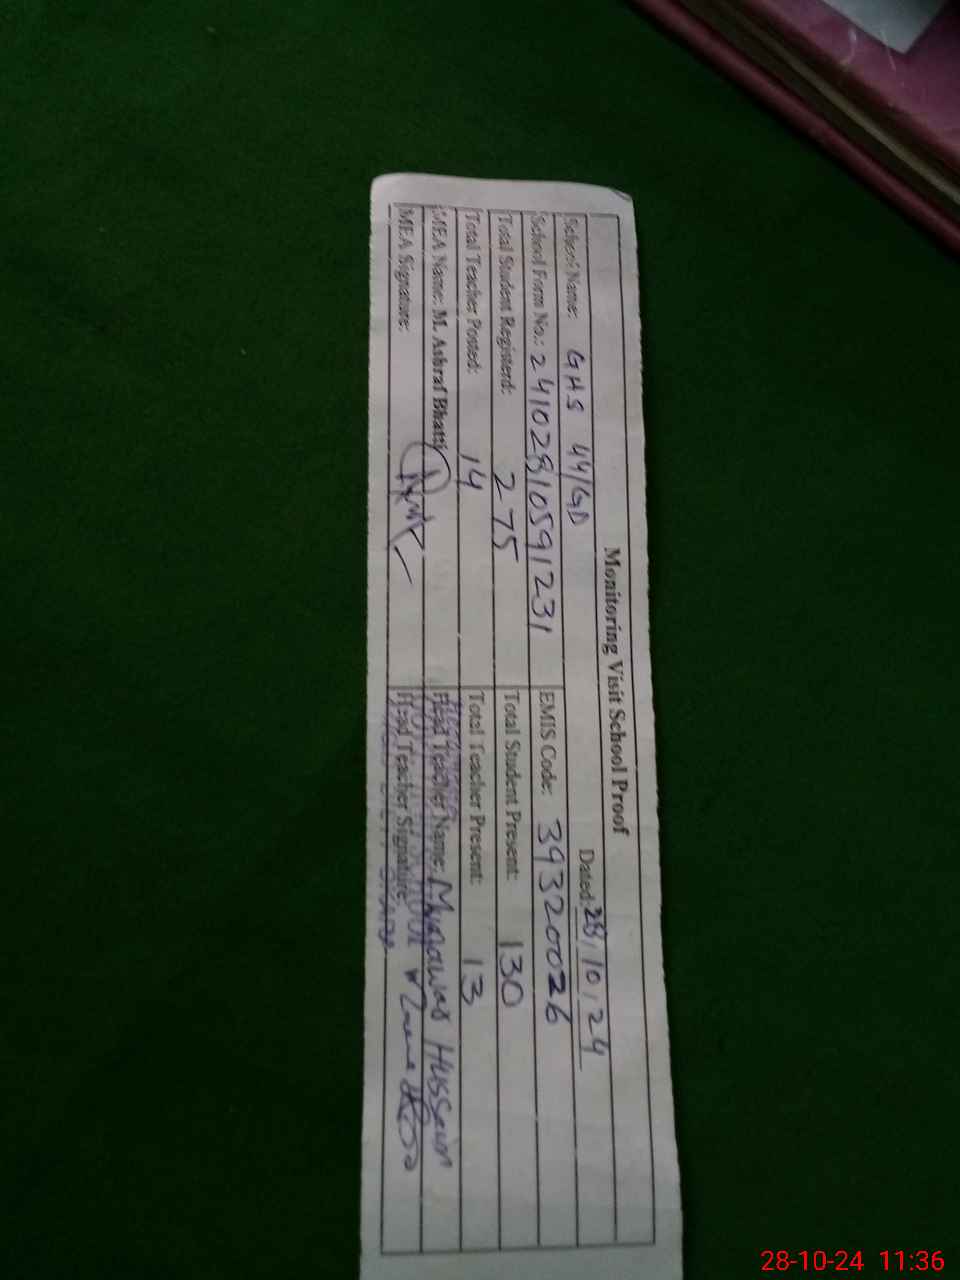 Monitoring Visit School Proof
Dated: 28/10/24
School Name: GHS 44/GD
School Form No.: 24102810591231 EMIS Code: 39320026
Total Student Registerd: 275 Total Student Present: 130
Total Teacher Posted: 14 Total Teacher Present: 13
MEA Name: M. Ashraf Bhatti Head Teacher Name: Munawar Hussain
MEA Signature: Head Teacher Signature:
28-10-24 11:36